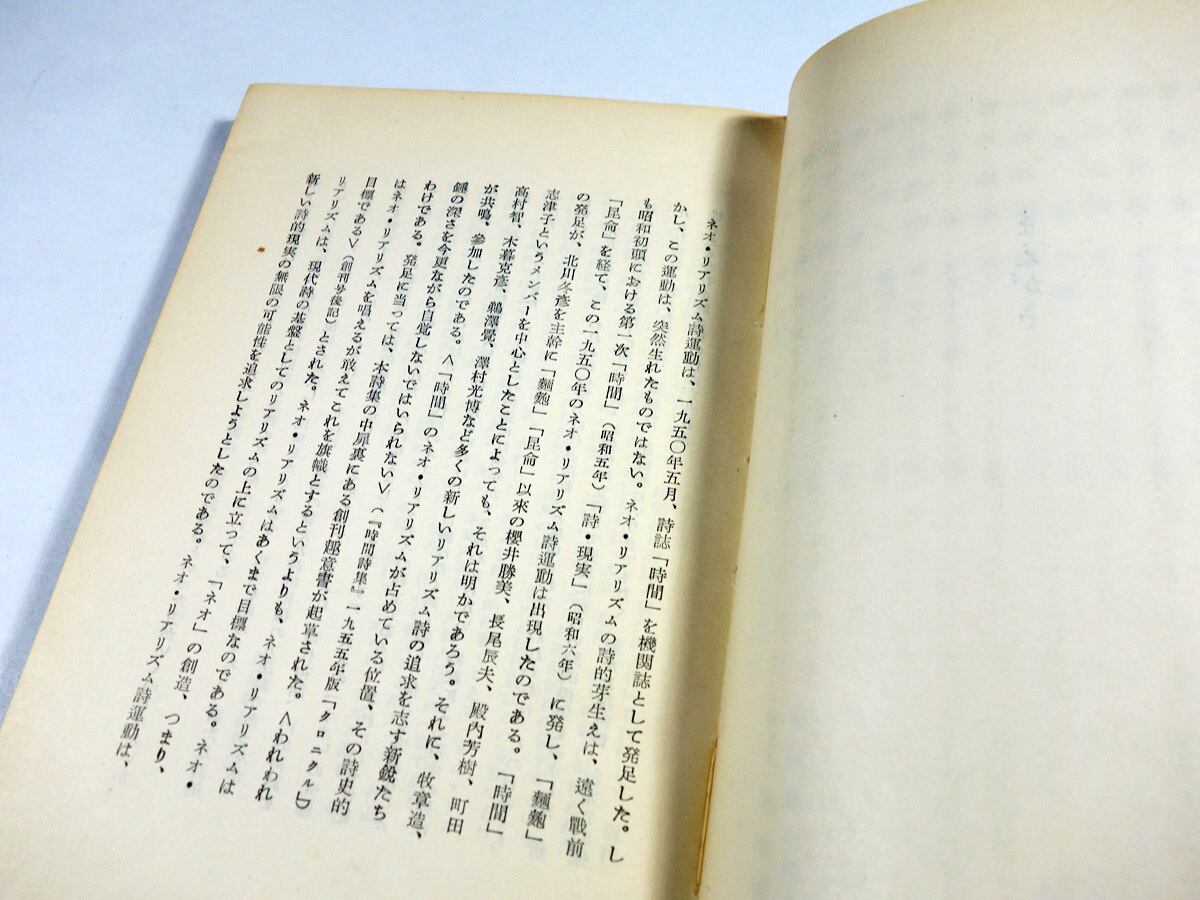 ネオ・リアリズム詩運動は、一九五〇年五月、詩誌「時間」を機関誌として発足した。し
かし、この運動は、突然生れたものではない。ネオ・リアリズムの詩的芽生えは、遠く戰前
も昭和初頭における第一次「時間」(昭和五年)「詩・現実」(昭和六年)に発し、「麵麭」
「昆侖」を経て、この一九五〇年のネオ・リアリズム詩運動は出現したのである。「時間」
の発足が、北川冬彦を主幹に「麵麭」「昆侖」以來の櫻井勝美、長尾辰夫、殿內芳樹、町田
志津子というメンバーを中心としたことによっても、それは明かであろう。それに、牧章造、
高村智、木暮克彦、鵜澤覺、澤村光博など多くの新しいリアリズム詩の追求を志す新銳たち
が共鳴、參加したのである。〈「時間」のネオ・リアリズムが占めている位置、その詩史的
錘の深さを今更ながら自覚しないではいられない〉(『時間詩集』一九五五年版「クロニクル」)
わけである。発足に当っては、本詩集の中扉裏にある創刊趣意書が起草された。〈われわれ
はネオ・リアリズムを唱えるが敢えてこれを旗幟とするというよりも、ネオ・リアリズムは
目標である〉(創刊号後記)とされた。ネオ・リアリズムはあくまで目標なのである。ネオ・
リアリズムは、現代詩の基盤としてのリアリズムの上に立って、「ネオ」の創造、つまり、
新しい詩的現実の無限の可能性を追求しようとしたのである。ネオ・リアリズム詩運動は、